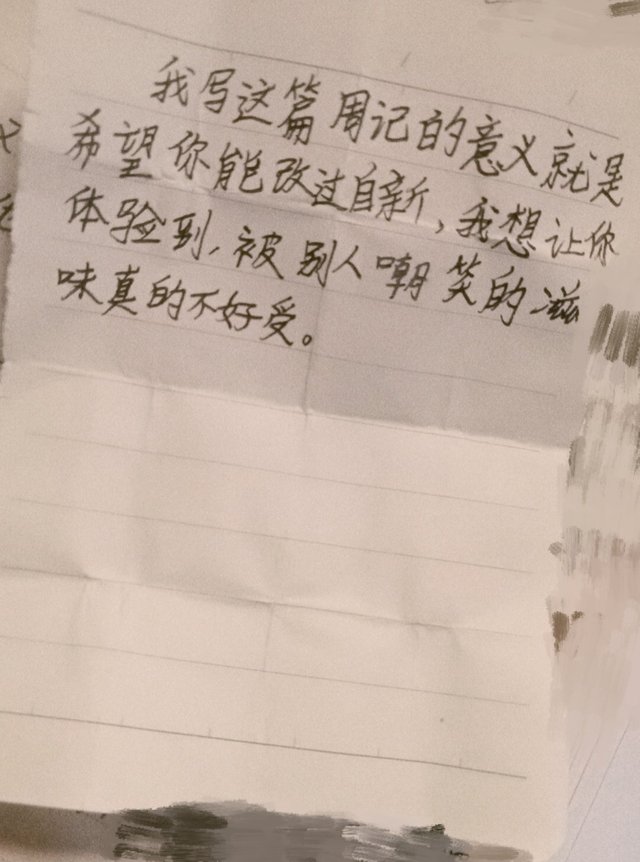 我写这篇周记的意义就是
希望你能改过自新,我想让你
体验到,被别人嘲笑的滋
味真的不好受。